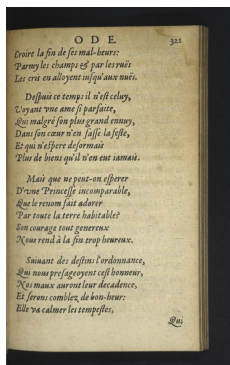 ODE. 321
Croire la fin de ses mal-heurs:
Parmy les champs & par les ruës
Les cris en alloyent iusqu'aux nuës.
Despuis ce temps il n'est celuy,
Voyant vne ame si parfaite,
Qui malgré son plus grand ennuy,
Dans son cœur n'en fasse la feste,
Et qui n'espere desormais
Plus de biens qu'il n'en eut iamais.
Mais que ne peut-on esperer
D'vne Princesse incomparable,
Que le renom fait adorer
Par toute la terre habitable?
Son courage tout genereux
Nous rend à la fin trop heureux.
Suiuant des destins l'ordonnance,
Qui nous presageoyent cest honneur,
Nos maux auront leur decadence,
Et serons comblez de bon-heur:
Elle va calmer les tempestes,
Qui